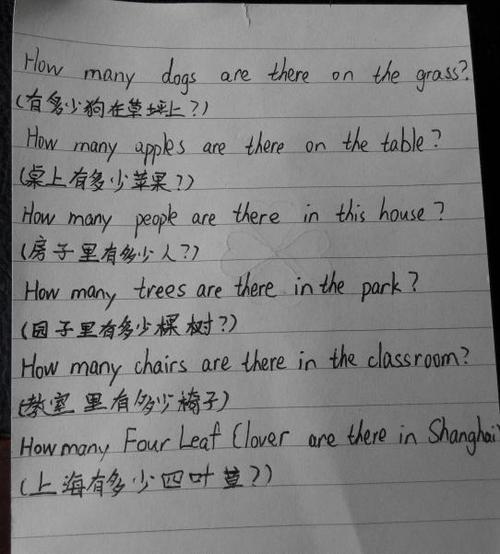 How many dogs are there on the grass?
(有多少狗在草坪上?)
How many apples are there on the table?
(桌上有多少苹果?)
How many people are there in this house?
(房子里有多少人?)
How many trees are there in the park?
(园子里有多少棵树?)
How many chairs are there in the classroom?
(教室里有多少椅子)
How many Four Leaf Clover are there in Shanghai?
(上海有多少四叶草?)